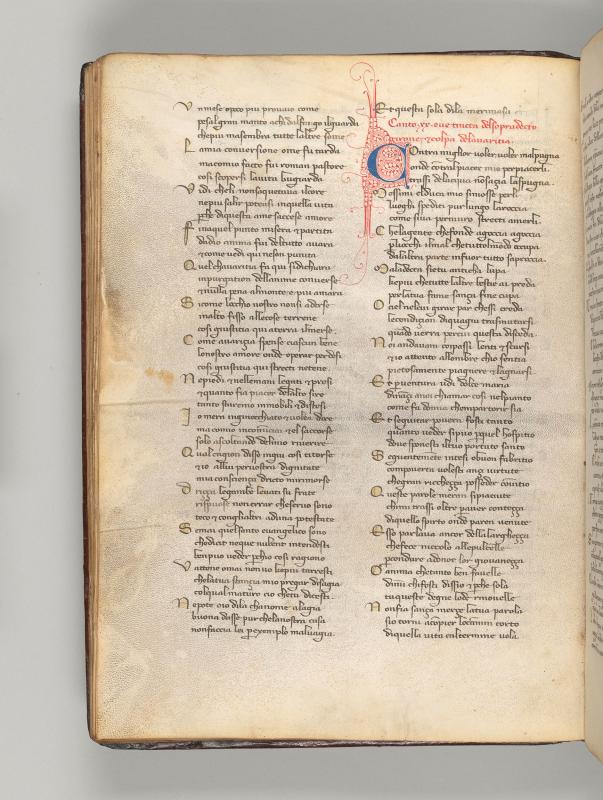 Vn mese epoco piu prouaio come
pesal gran manto achi dalfango ilguarda
chepiu masembra tutte laltre some
La mia conuersione ome fu tarda
ma como facto fui roman pastore
cosi scopersi lauita bugiarda
Vidi cheli nonsaquetaua ilcore
nepiu salir poteasi inquella uita
perche diquesta ame saccese amore
Fin aquel punto misera & partita
dadio anima fui deltutto auara
& come uedi qui neson punita
Quel chauaritia fa qui sidichiara
inpurgation dellanime conuerse
& nulla pena almonte e piu amara
Si come lochio nostro nonsi aderse
inalto fisso allecose terrene
cosi giustitia qui aterra ilmerse
Come auaritia spense ciascun bene
lonostro amore onde operar perdesi
cosi giustitia qui strecti netene
Nepiedi & nellemani legati & presi
& quanto fia piacer delalto sire
tanto staremo inmobili & distesi
Io mera inginocchiato & uolea dire
ma como incominciai & el saccorse
solo ascoltando delmio riuerire
Qual cagion disse ingiu cosi titorse
& io allui peruostra dignitate
mia conscienza dricto mirmorse
Driçça legambe leuati su frate
rispuose nonerrar cheseruo sono
teco & conglialtri aduna potestate
Se mai quelsanto euangelico sono
chedice neque nubent intendesti
benpuo ueder perchio cosi ragiono
Vattene omai nonuo kepiu tarresti
chelatua stanza mio pregar disagia
colqual maturo cio chetu dicesti
Nepote oio dila chanome alagia
buona dasse pur chelanostra casa
nonfaccia lei peresemplo maluagia
Et questa sola dila merimasa
Canto .xx. oue tracta delsopradecto
girone & colpa dellauaritia.
Contra miglior uoler uoler malpugna
onde contralpiacer mio perpiacerli
trassi delaqua nonsatia laspugna
Mossimi elduca mio simosse perli
luoghi spediti pur lungo laroccia
come siua permuro strecti amerli
Che lagente chefonde agoccia agoccia
perliocchi ilmal chetuttolmondo occupa
dalaltra parte infuor tutto saproccia
Maladecta sietu anticha lupa
kepiu chetutte laltre bestie ai preda
perlatua fame sança fine cupa
O ciel nelcui girar par chessi creda
lecondition diquagiu trasmutarsi
quado uerra percui questa disceda
Noi andauam compassi lenti & scarsi
& io attento allombre chio sentia
pietosamente piagnere & lagnarsi
Et peruentura udi dolce maria
dinançi anoi chiamar cosi nelpianto
come fa donna chempartorir sia
Et seguitar pouera foste tanto
quanto ueder sipuo perquel hospitio
doue sponesti iltuo portato santo
Seguentemente intesi obuon fabritio
compouerta uolesti ançi uirtute
chegran riccheçça posseder conuitio
Queste parole meran sipiaciute
chimi trassi oltre pauer conteçça
diquello spirto onde paren uenute
Esso parlaua ancor dellalargheçça
chefece niccolo allepulcelle
percondure adonor lor giouaneçça
O anima chetanto ben fauelle
dimi chifosti dissio & perche sola
tuqueste degne lode rinouelle
Nonfia sança merçe latua parola
sio torni acompier locamin corto
diquella uita chaltermine uola.